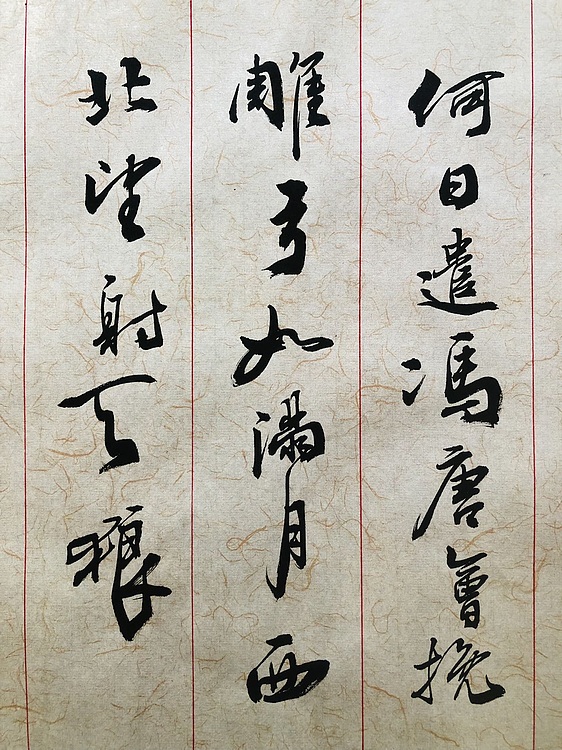 何日遣馮唐會挽
雕弓如滿月西
北望射天狼